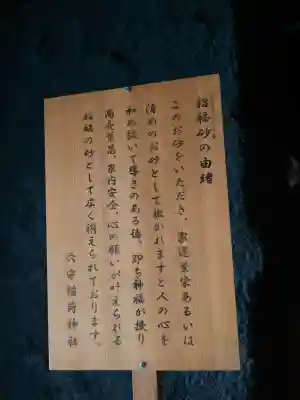 招福砂の由緒
このお砂をいただき、家運業栄あるいは
清めのお砂として撒かれますと人の心を
和め頂いて導きのある儘、即ち神福が授り
商売繁昌、家内安全、心の願いが叶えられる
招福の砂として広く称えられております。
穴守稲荷神社